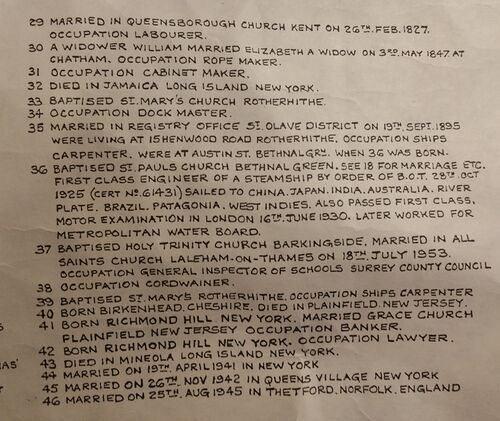 29 MARRIED IN QUEENSBOROUGH CHURCH KENT ON 26TH. FEB. 1827.
OCCUPATION LABOURER.
30 A WIDOWER WILLIAM MARRIED ELIZABETH A WIDOW ON 3RD. MAY 1847. AT
CHATHAM. OCCUPATION ROPE MAKER.
31 OCCUPATION CABINET MAKER.
32 DIED IN JAMAICA LONG ISLAND NEW YORK.
33 BAPTISED ST. MARY'S CHURCH ROTHERHITHE.
34 OCCUPATION DOCK MASTER.
35 MARRIED IN REGISTRY OFFICE ST. OLAVE DISTRICT ON 19TH. SEPT. 1895
WERE LIVING AT 15 HENWOOD ROAD ROTHERHITHE, OCCUPATION SHIPS
CARPENTER. WERE AT AUSTIN ST. BETHNAL GRN. WHEN 36 WAS BORN.
36 BAPTISED ST. PAULS CHURCH BETHNAL GREEN. SEE 18 FOR MARRIAGE ETC.
FIRST CLASS ENGINEER OF A STEAMSHIP BY ORDER OF B.O.T. 28TH. OCT
1925 (CERT NO. 61431) SAILED TO CHINA. JAPAN. INDIA. AUSTRALIA. RIVER
PLATE. BRAZIL. PATAGONIA. WEST INDIES. ALSO PASSED FIRST CLASS,
MOTOR EXAMINATION IN LONDON 16TH. JUNE 1930. LATER WORKED FOR
METROPOLITAN WATER BOARD.
37 BAPTISED HOLY TRINITY CHURCH BARKINGSIDE. MARRIED IN ALL
SAINTS CHURCH LALEHAM-ON-THAMES ON 18TH. JULY 1953.
OCCUPATION GENERAL INSPECTOR OF SCHOOLS SURREY COUNTY COUNCIL
38 OCCUPATION CORDWAINER.
39 BAPTISED ST. MARY'S ROTHERHITHE. OCCUPATION SHIPS CARPENTER
40 BORN BIRKENHEAD, CHESHIRE, DIED IN PLAINFIELD, NEW JERSEY.
41 BORN RICHMOND HILL NEW YORK. MARRIED GRACE CHURCH
PLAINFIELD NEW JERSEY OCCUPATION BANKER.
42 BORN RICHMOND HILL NEW YORK. OCCUPATION LAWYER.
43 DIED IN MINEOLA LONG ISLAND NEW YORK.
44 MARRIED ON 19TH. APRIL 1941 IN NEW YORK
45 MARRIED ON 26TH. NOV 1942 IN QUEENS VILLAGE NEW YORK
46 MARRIED ON 25TH. AUG 1945 IN THETFORD. NORFOLK. ENGLAND